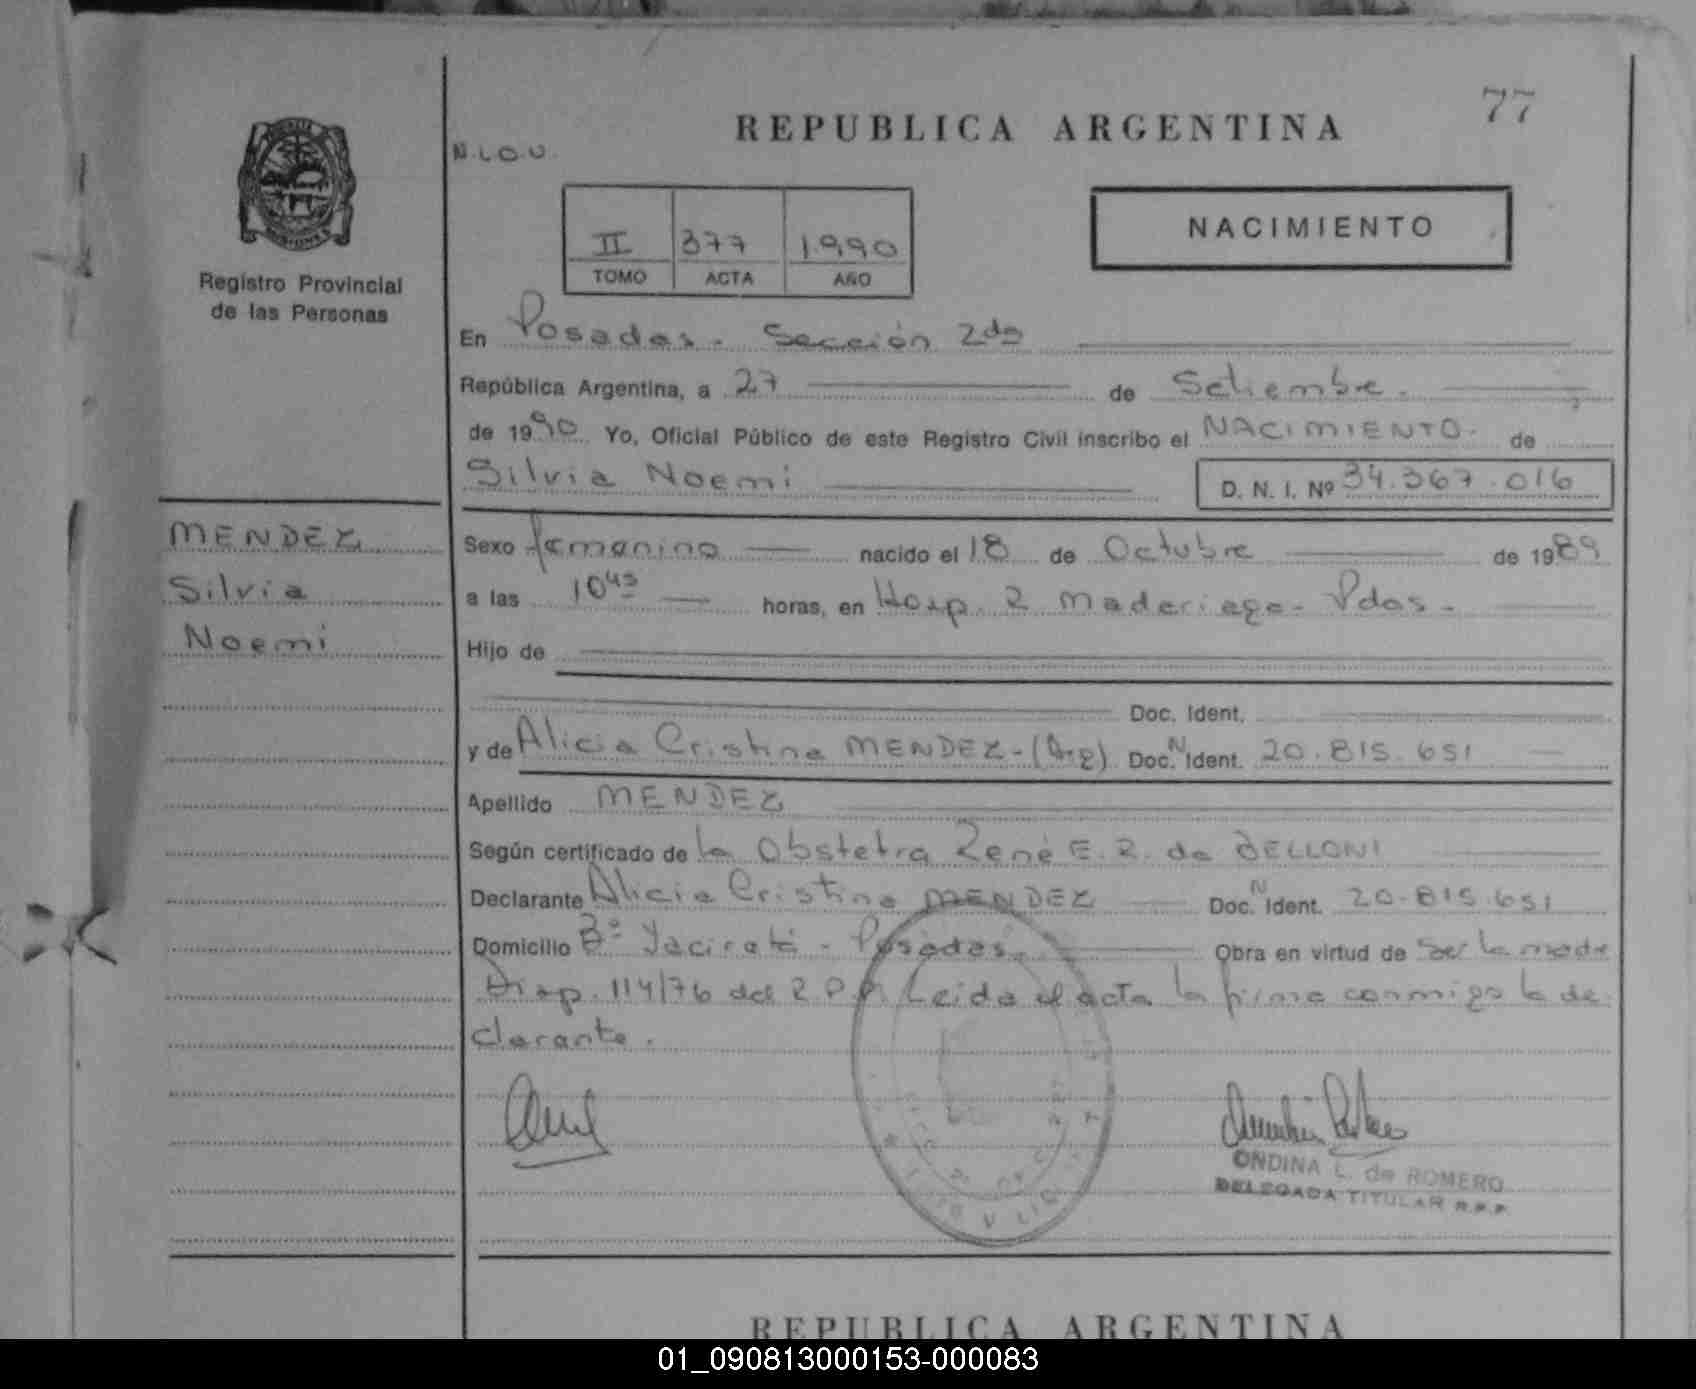 77
REPUBLICA ARGENTINA
N.L.O.U.
NACIMIENTO
II 377 1.990
TOMO ACTA AÑO
Registro Provincial
de las Personas
En Posadas. Sección 2da
República Argentina, a 27 de Setiembre.
de 1990 Yo, Oficial Público de este Registro Civil inscribo el NACIMIENTO. de
Silvia Noemi D. N. I. Nº 34.367.016
MENDEZ
Silvia
Noemi
Sexo femenino nacido el 18 de Octubre de 1989
a las 10 45 horas, en Hosp. R Madariaga - Pdas.
Hijo de
Doc. Ident.
y de Alicia Cristina MENDEZ - (Arg) Doc. N Ident. 20.815.651
Apellido MENDEZ
Según certificado de la Obstetra René E. R. de BELLONI
Declarante Alicia Cristina MENDEZ Doc. N Ident. 20.815.651
Domicilio Bº Yacireta - Posadas. Obra en virtud de ser la madre
Disp. 114/76 del R.P.P. Leida el acta la firma conmigo la de-
clarante.
ONDINA L. de ROMERO
DELEGADA TITULAR R.P.P.
REPUBLICA ARGENTINA
01_090813000153-000083